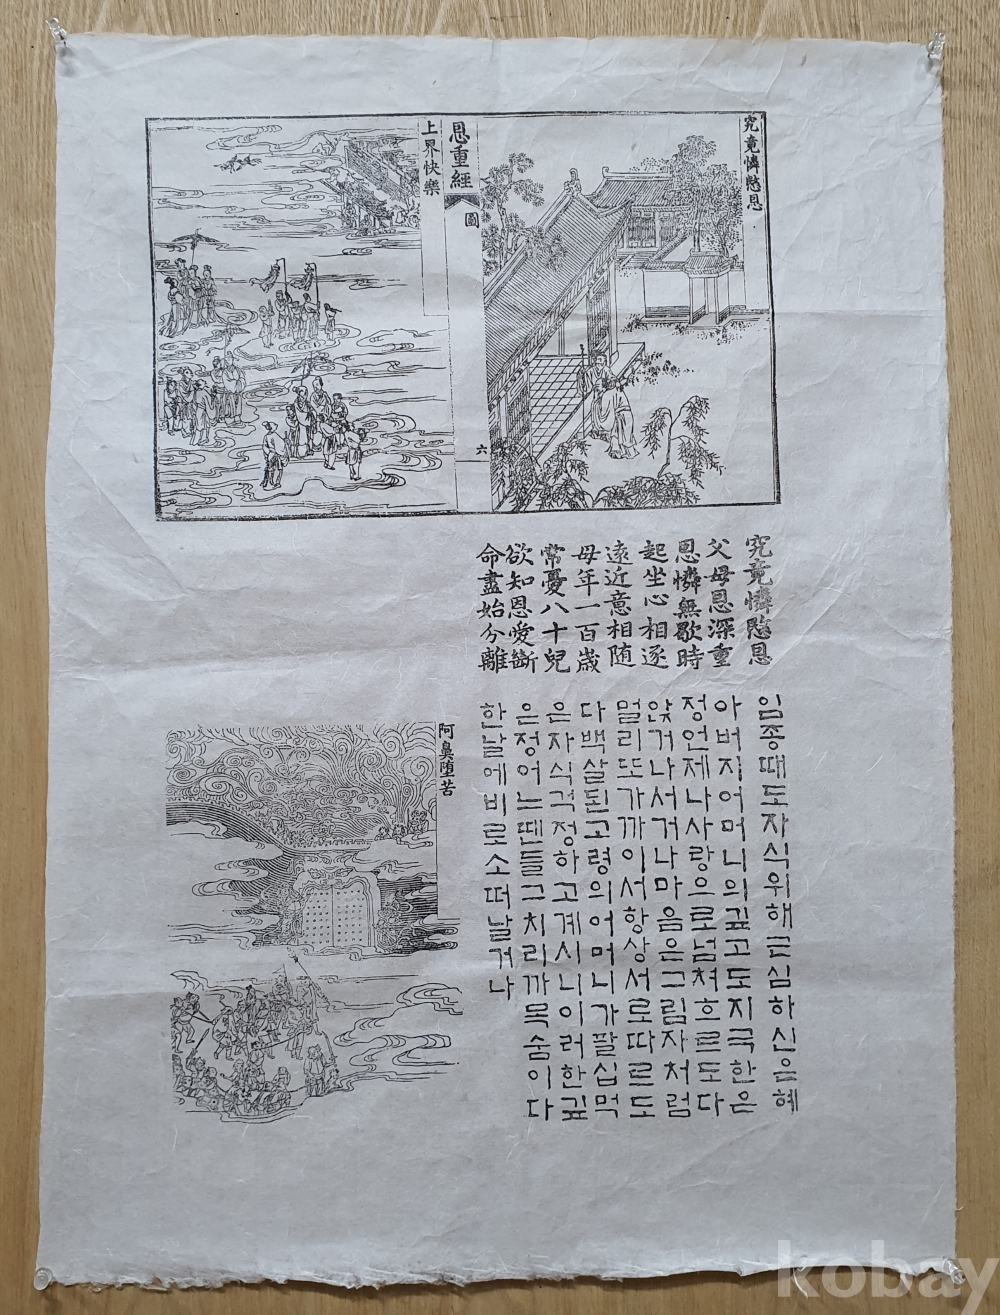 究竟憐愍恩
恩重經
圖
六
上界快樂
究竟憐愍恩
父母恩深重
恩憐無歇時
起坐心相逐
遠近意相随
母年一百歲
常憂八十兒
欲知恩愛斷
命盡始分離
임종때도자식위해근심하신은혜
아버지어머니의깊고도지극한은
정언제나사랑으로넘쳐흐르도다
앉거나서거나마음은그림자처럼
멀리또가까이서항상서로따르도
다백살된고령의어머니가팔십먹
은자식걱정하고계시니이러한깊
은정어느땐들그치리까목숨이다
한날에비로소떠날거나
阿鼻墮苦
kobay